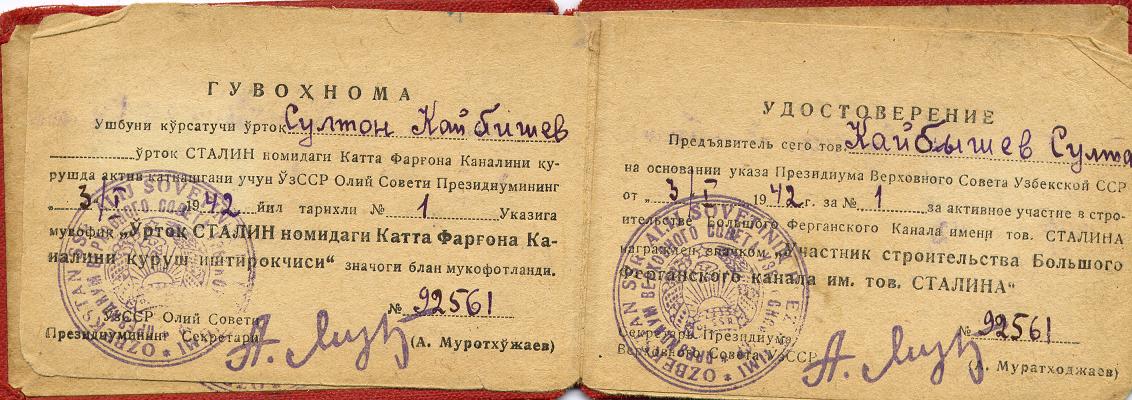 ГУВОҲНОМА
Ушбуни кўрсатучи ўртоқ Султон Кайбишев
ўртоқ СТАЛИН номидаги Катта Фарғона Каналини қу-
рушда актив катнашгани учун ЎзССР Олий Совети Президиумининг
„ 3/I 1942 йил тарихли № 1 Указига
мувофиқ „Ўртоқ СТАЛИН номидаги Катта Фарғона Ка-
налини қуруш иштирокчиси“ значоги блан мукофотланди.
№ 92561
ЎзССР Олий Совети
Президиумининг Секретари
(А. Муротхўжаев)
УДОСТОВЕРЕНИЕ
Предъявитель сего тов. Кайбышев Султа
на основании указа Президиума Верховного Совета Узбекской ССР
от „ 3/I 1942 г. за № 1 за активное участие в стро-
ительстве Большого Ферганского Канала имени тов. СТАЛИНА
награжден значком „Участник строительства Большого
Ферганского канала им. тов. СТАЛИНА“
№ 92561
Секретарь Президиума
Верховного Совета УзССР
(А. Муратходжаев)